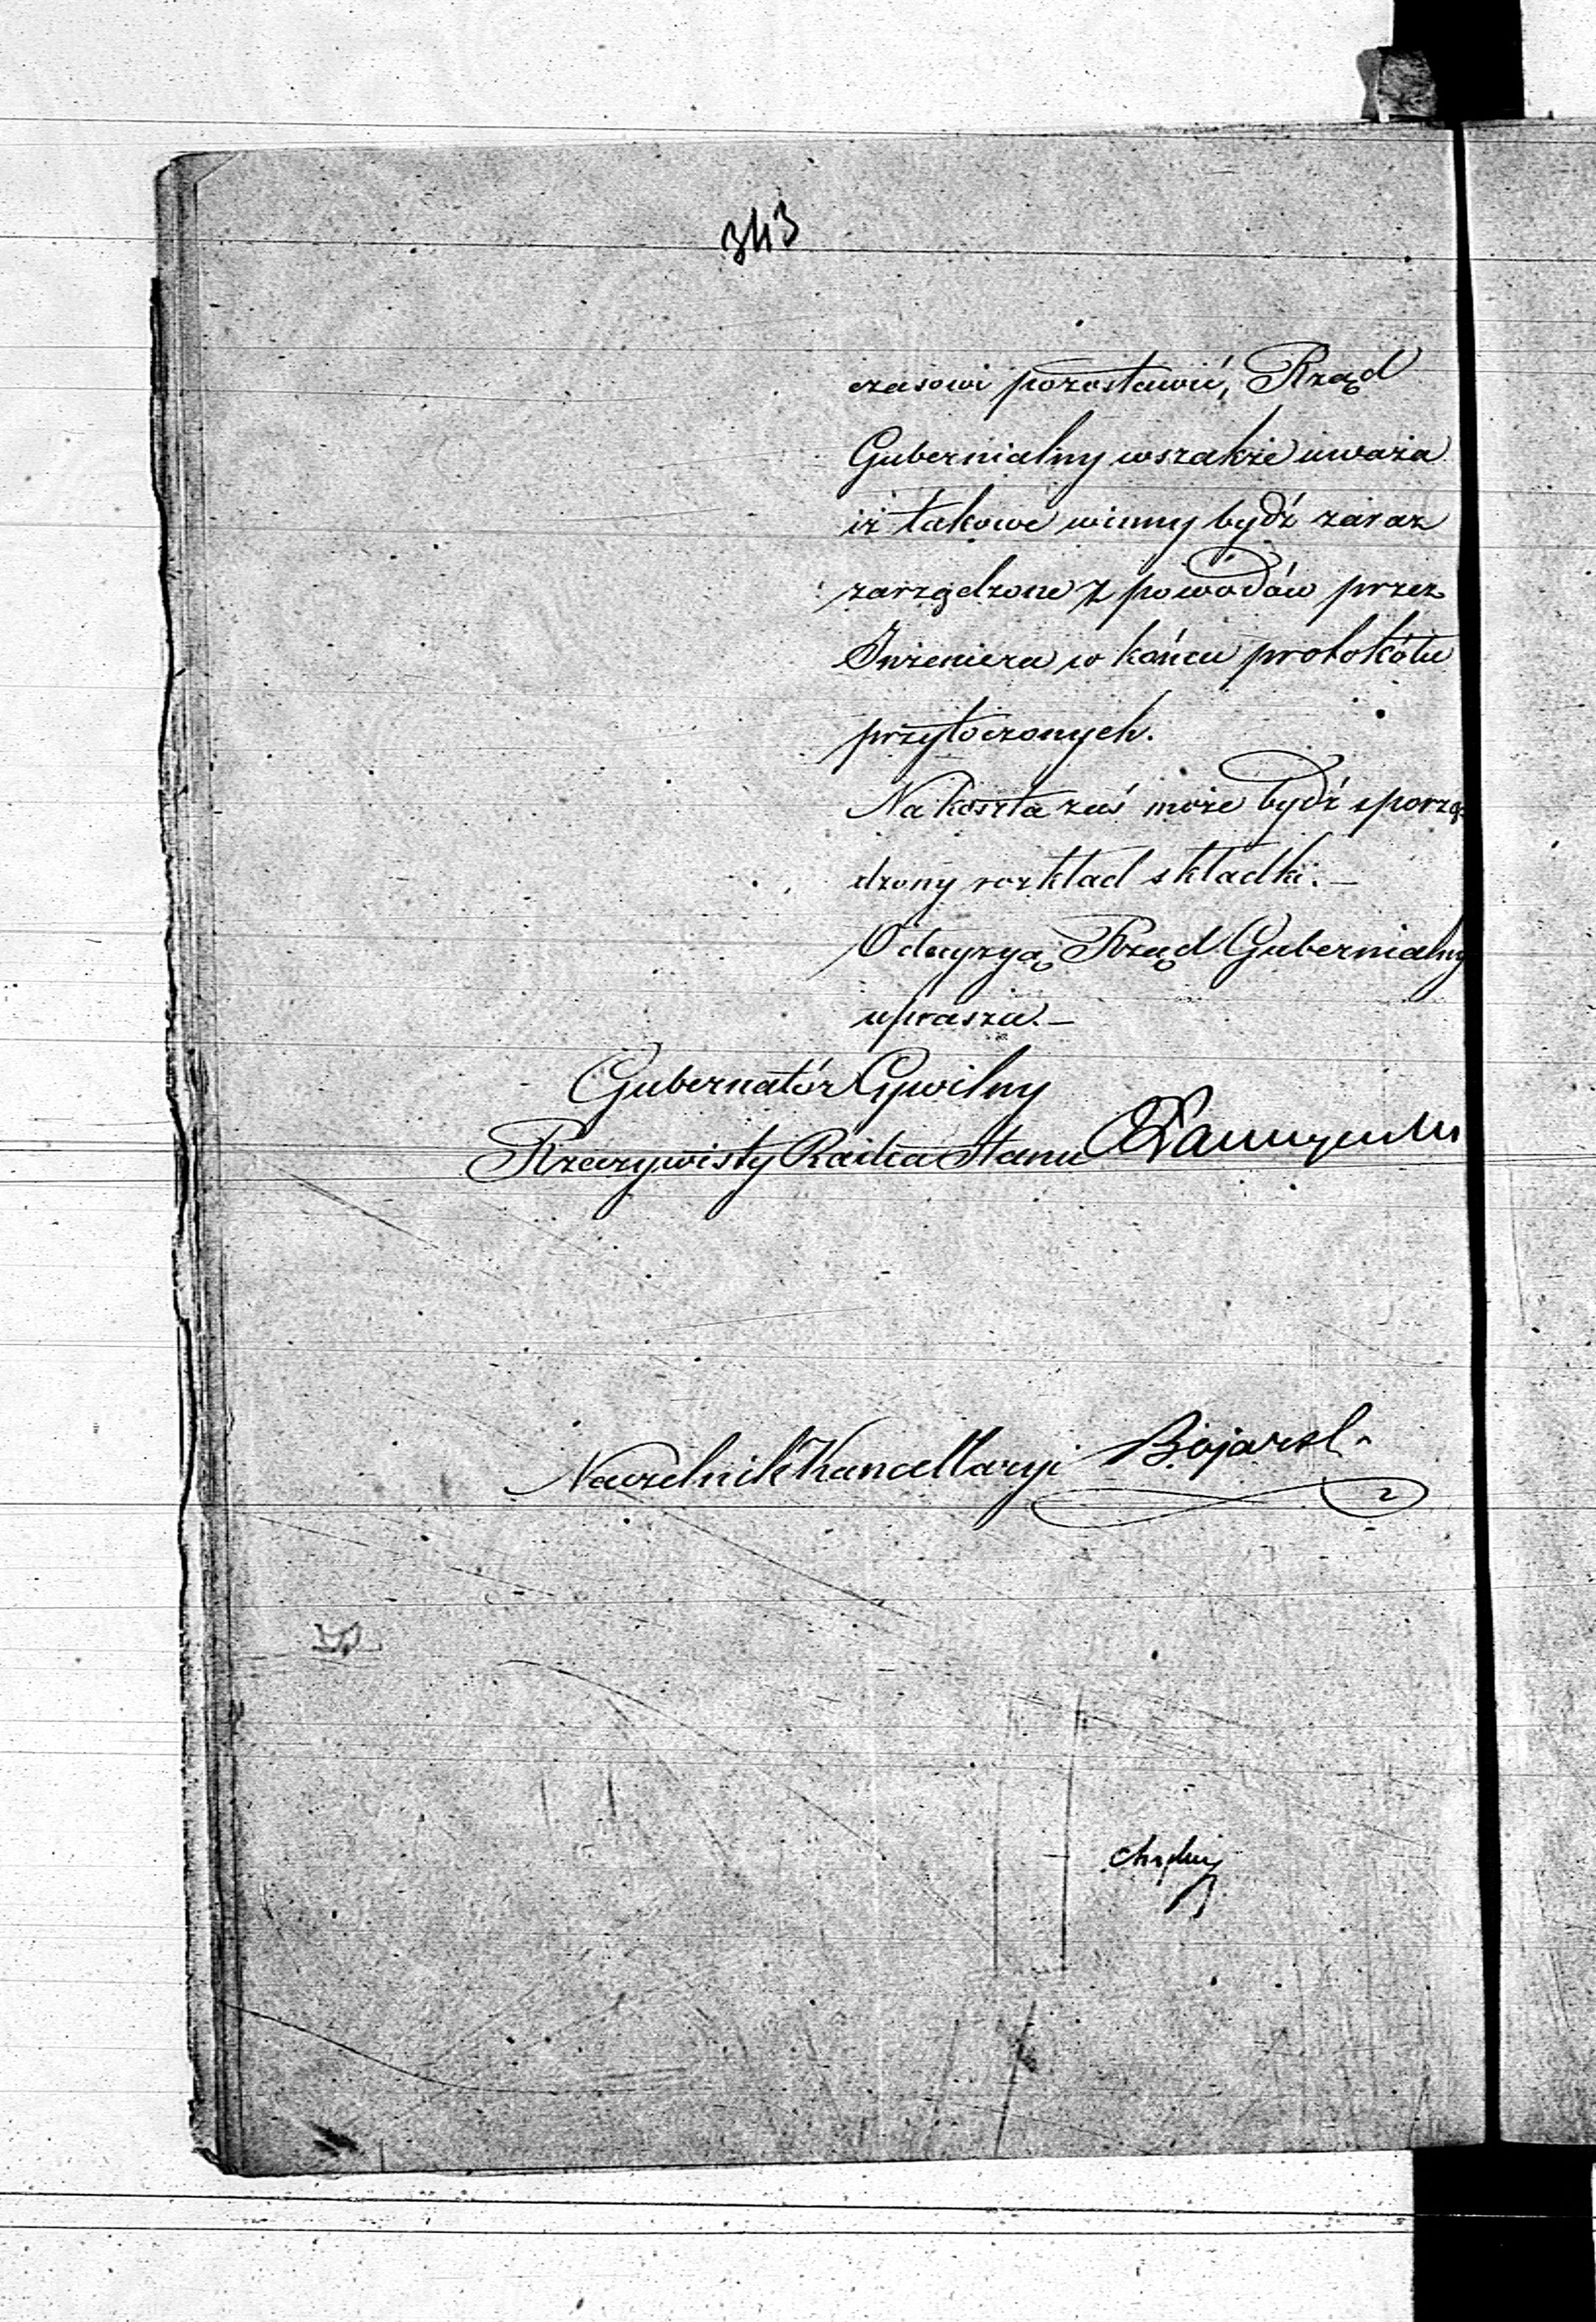 343
czasowi pozostawić, Rząd
Gubernialny wszakże uważa
iż takowe winny bydź zaraz
zarządzone z powodów przez
Inżeniera w końcu protokółu
przytoczonych.
Na koszta zaś może bydź sporzą
dzony rozkład składki. —
O decyzyą Rząd Gubernialny
uprasza. —
Gubernatór Cywilny
Rzeczywisty Radca Stanu
Naczelnik Kancellaryi Bojarsk